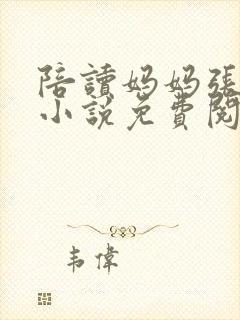 陪讀媽媽張
小說免費閱
韦偉